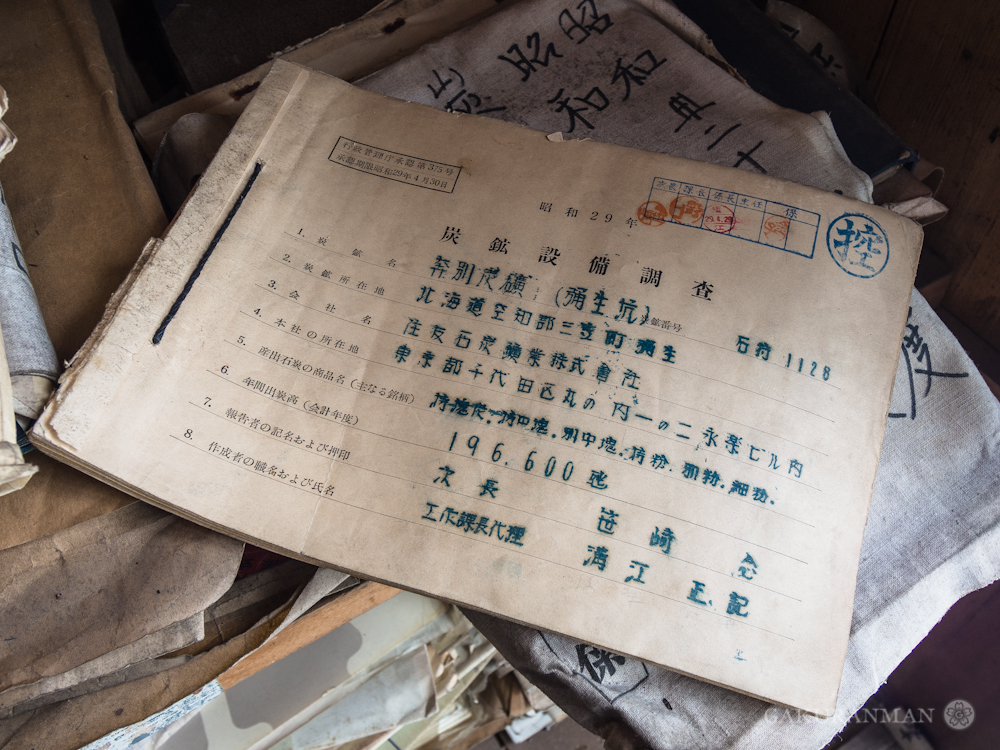 昭和
昭和卅二
行政管理庁承認第375号
承認期限昭和29年4月30日
次長 課長 係長 主任 係
控
昭和29年
炭鉱設備調査
1. 炭鉱名 奔別炭礦(彌生坑) 鉱番号 石狩 1128
2. 炭鉱所在地 北海道空知郡三笠町彌生
3. 会社名 住友石炭礦業株式會社
4. 本社の所在地 東京都千代田区丸の内一の二永楽ビル内
5. 産出石炭の商品名(主なる銘柄) 特中塊.別中塊.特粉.別粉.細粉.
6. 年間出炭高(会計年度) 196.600 瓲
7. 報告者の記名および押印 次長 笹崎
8. 作成者の職名および氏名 工作課長代理 溝江正記
度
保
GAKURANMAN